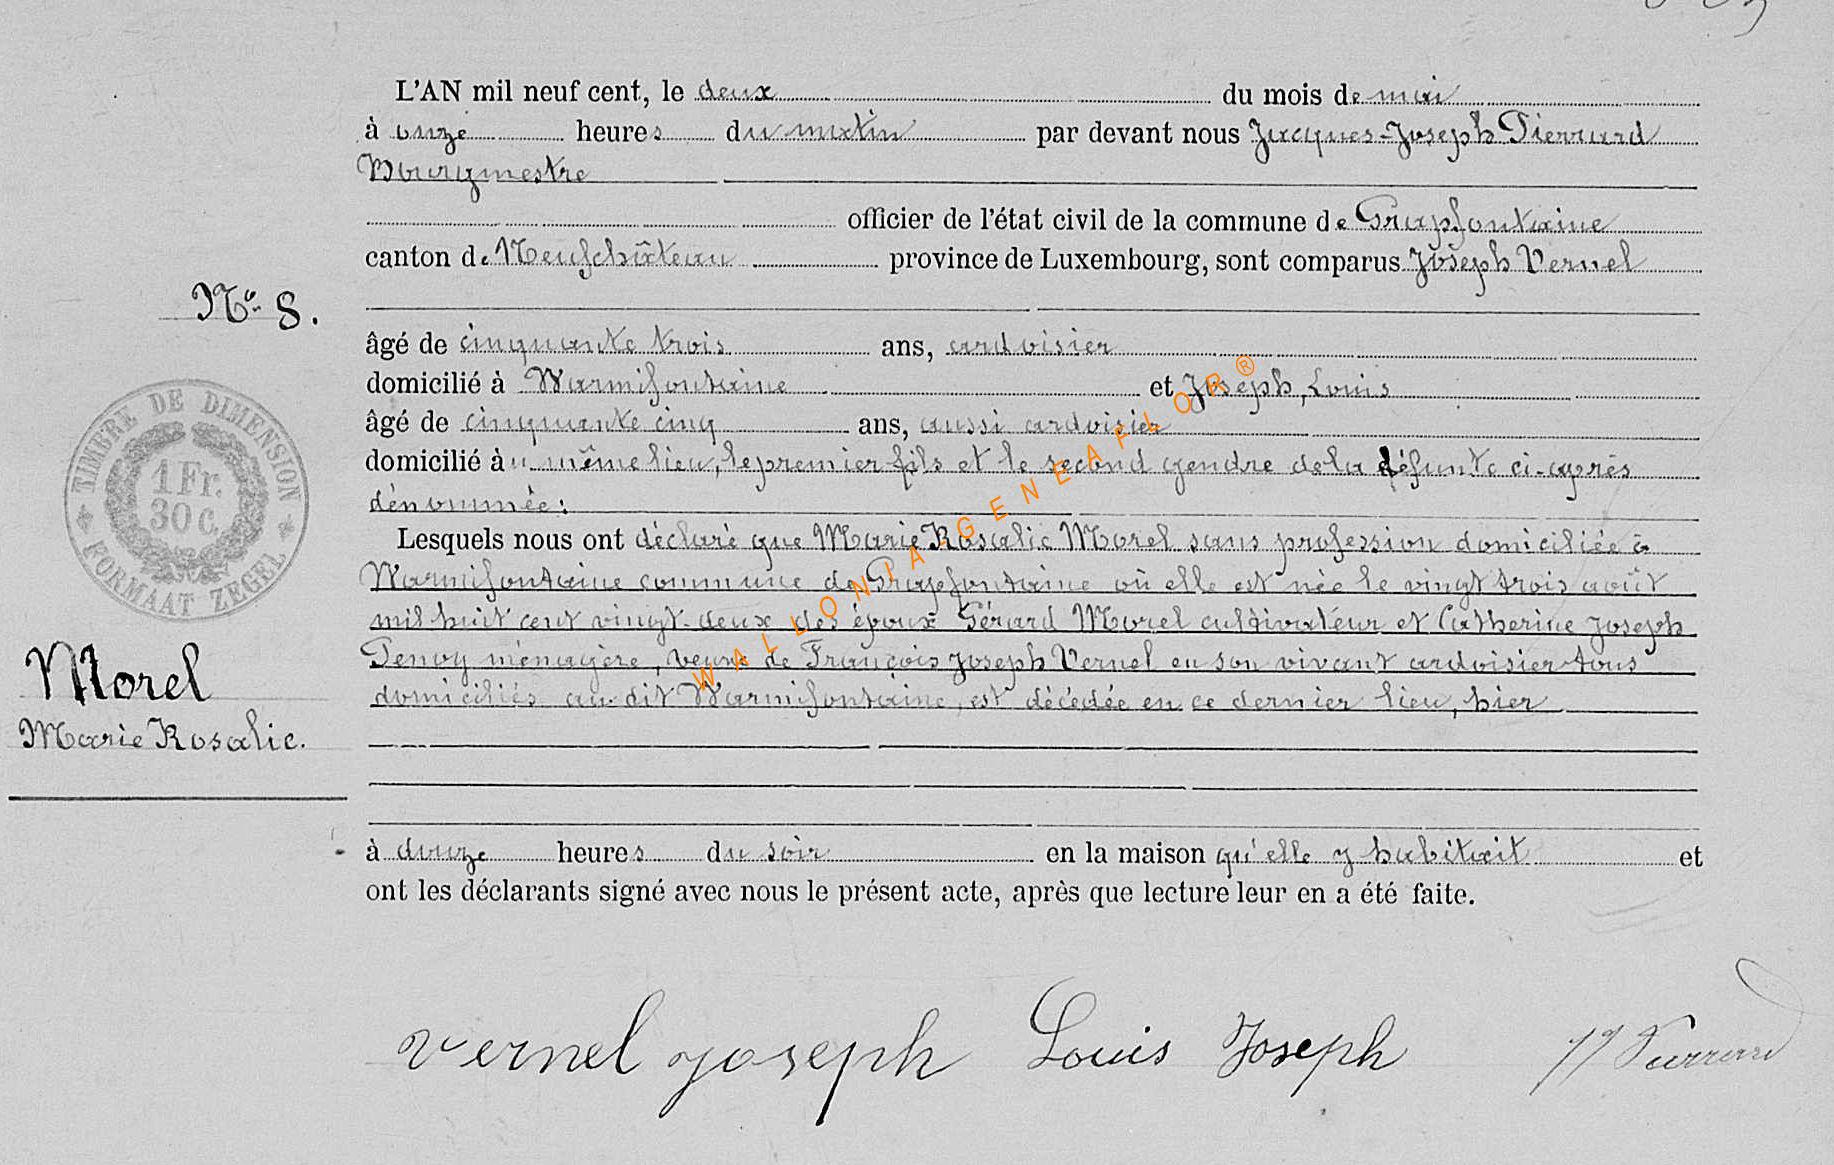 L'AN mil neuf cent, le deux du mois de mai
à onze heures du matin par devant nous Jacques-Joseph Pierrard
Bourgmestre
officier de l'état civil de la commune de Grapfontaine
canton de Neufchâteau province de Luxembourg, sont comparus Joseph Vernel
No 8.
âgé de cinquante trois ans, ardoisier
domicilié à Warmifontaine et Joseph, Louis
âgé de cinquante cinq ans, aussi ardoisier
domicilié au même lieu, le premier fils et le second gendre de la défunte ci-après
dénommée:
Lesquels nous ont déclaré que Marie Rosalie Morel sans profession domiciliée à
Warmifontaine commune de Grapfontaine où elle est née le vingt trois août
mil huit cent vingt-deux des époux Gérard Morel cultivateur et Catherine Joseph
ménagère, veuve de François Joseph Vernel en son vivant ardoisier tous
domiciliés au dit Warmifontaine, est décédée en ce dernier lieu, hier
à douze heures du soir en la maison qu'elle y habitait et
ont les déclarants signé avec nous le présent acte, après que lecture leur en a été faite.
TIMBRE DE DIMENSION
1 Fr.
30 c.
FORMAAT ZEGEL
Morel
Marie Rosalie.
WALLONIA-GENEAFLOR®
Vernel Joseph Louis Joseph JJ Pierrard